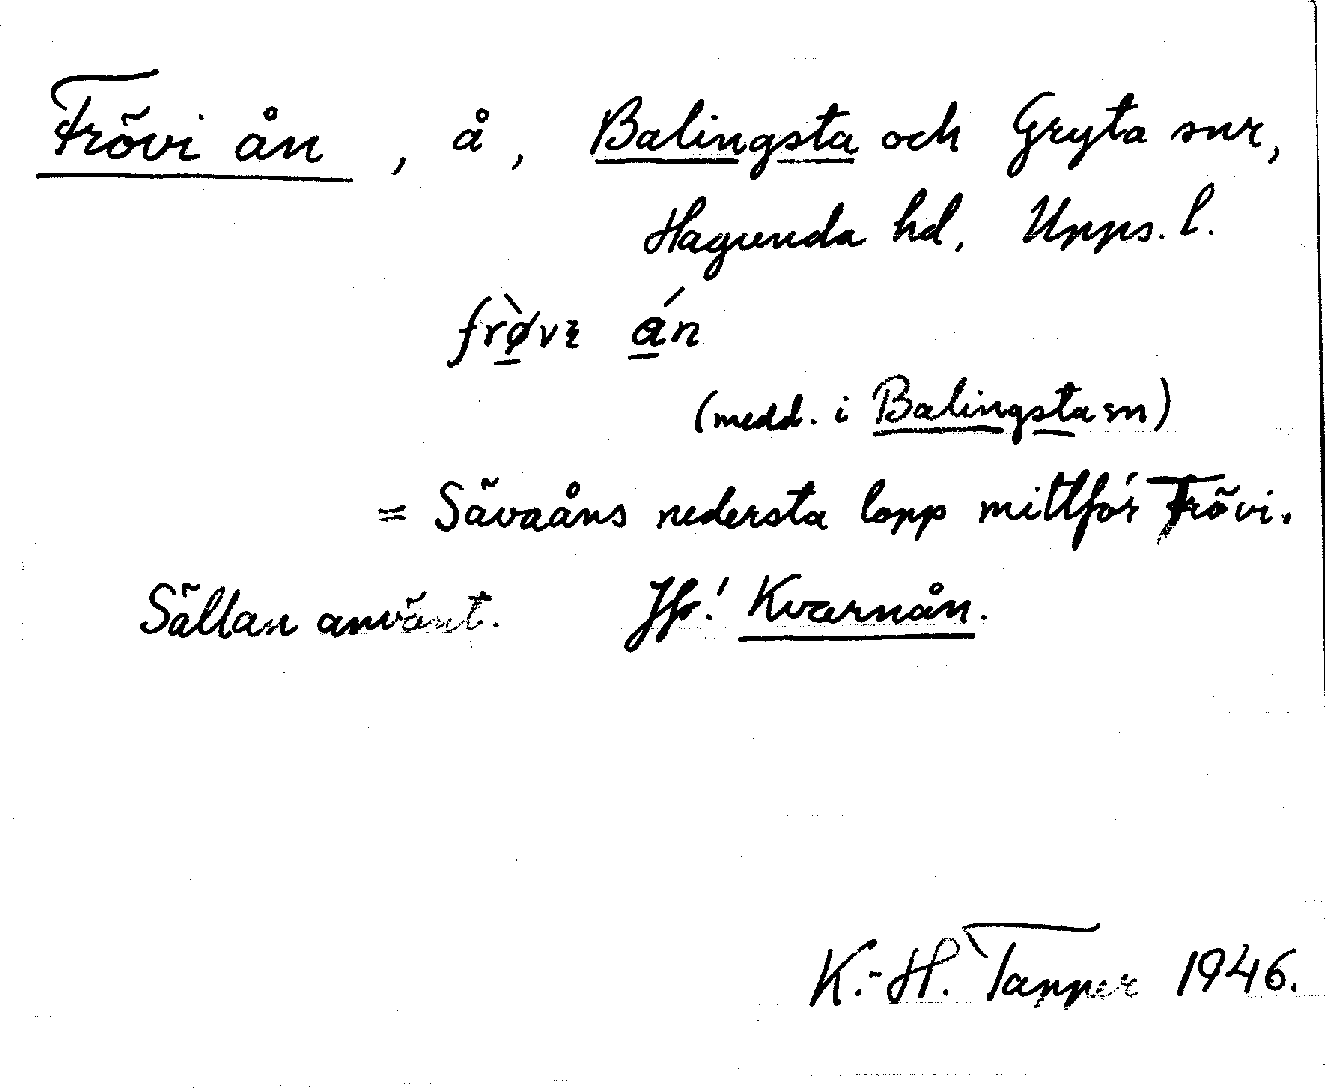 Frövi ån, å, Balingsta och Gryta snr,
Hagunda hd, Upps. l.
frø̀vɩ án
(medd. i Balingsta sn)
= Sävaåns nedersta lopp mittför Frövi.
Sällan använt. Jfr! Kvarnån.
K.-H. Tapper 1946.